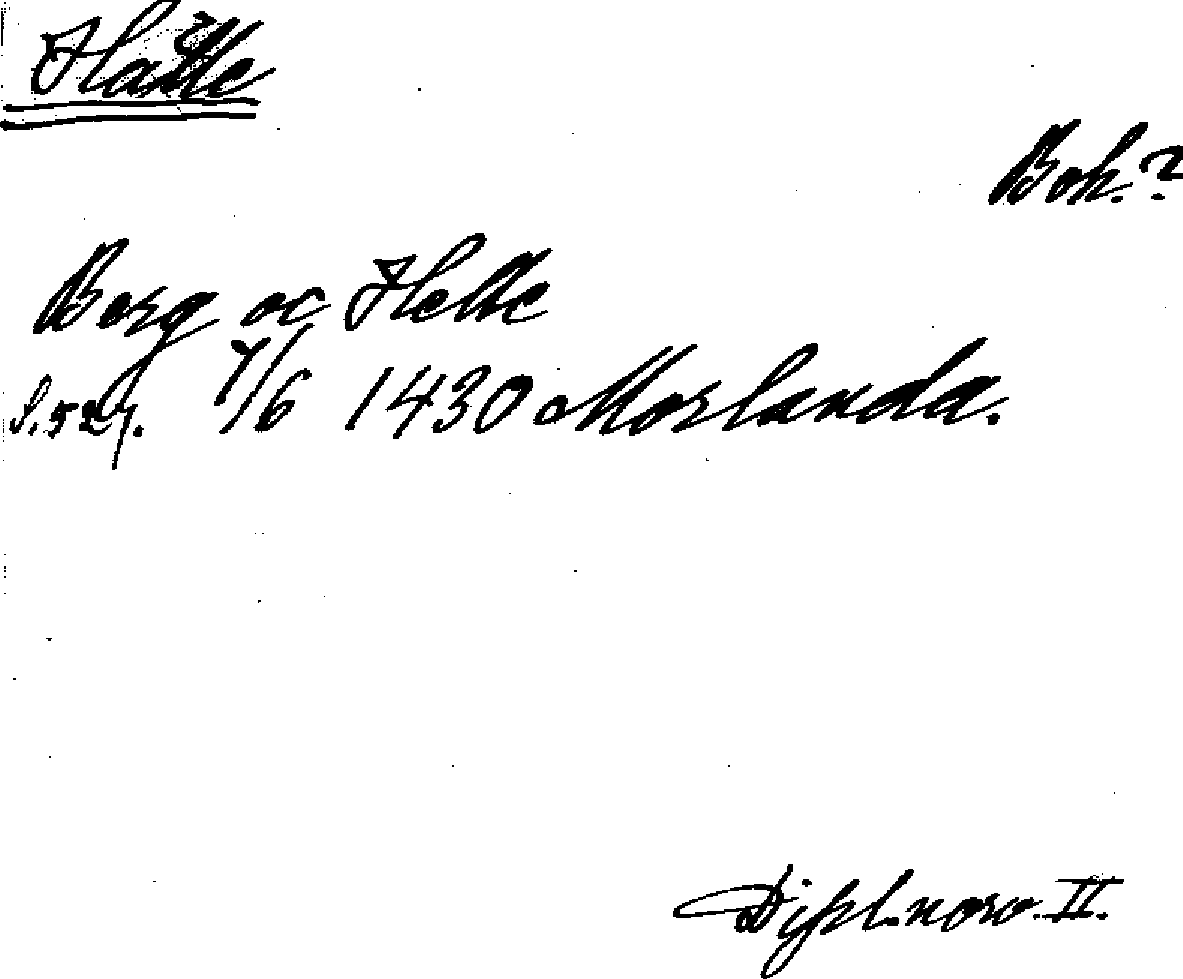 Hälle
Boh.?
Berg oc Helle
S.527. 7/6 1430 Morlanda.
Dipl. norv. II.